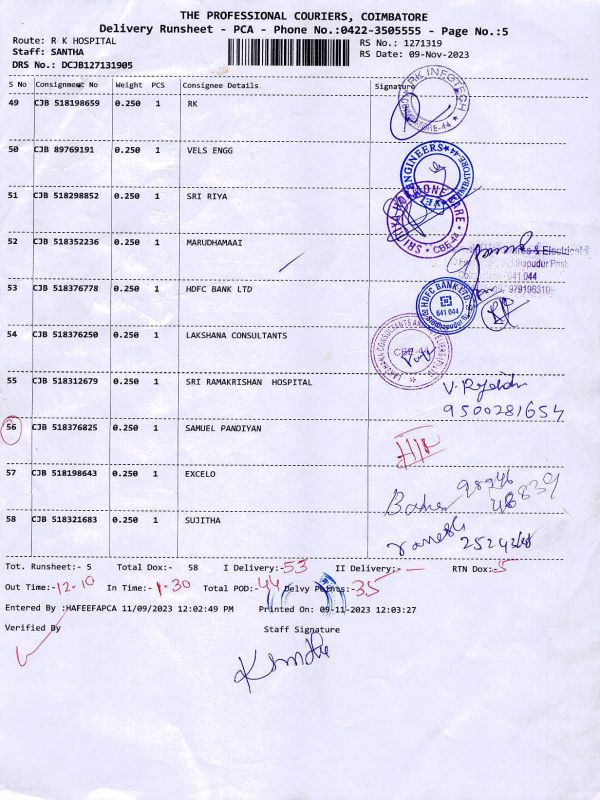 THE PROFESSIONAL COURIERS, COIMBATORE
Delivery Runsheet - PCA - Phone No.:0422-3505555 - Page No.:5
Route: R K HOSPITAL RS No.: 1271319
Staff: SANTHA RS Date: 09-Nov-2023
DRS No.: DCJB127131905
S No Consignment No Weight PCS Consignee Details Signature
49 CJB 518198659 0.250 1 RK
RK INFOTECH
50 CJB 89769191 0.250 1 VELS ENGG
51 CJB 518298852 0.250 1 SRI RIYA
CBE-44
52 CJB 518352236 0.250 1 MARUDHAMAAI
& Electrical
641 044
53 CJB 518376778 0.250 1 HDFC BANK LTD
HDFC BANK LTD
641 044
54 CJB 518376250 0.250 1 LAKSHANA CONSULTANTS
CBE-44
55 CJB 518312679 0.250 1 SRI RAMAKRISHAN HOSPITAL
9500281654
56 CJB 518376825 0.250 1 SAMUEL PANDIYAN
57 CJB 518198643 0.250 1 EXCELO
58 CJB 518321683 0.250 1 SUJITHA
Tot. Runsheet:- 5 Total Dox:- 58 I Delivery:-53 II Delivery:- - RTN Dox:-5
Out Time:-12-10 In Time:-1-30 Total POD:-44 Delvy Points:-35
Entered By :HAFEEFAPCA 11/09/2023 12:02:49 PM Printed On: 09-11-2023 12:03:27
Verified By Staff Signature